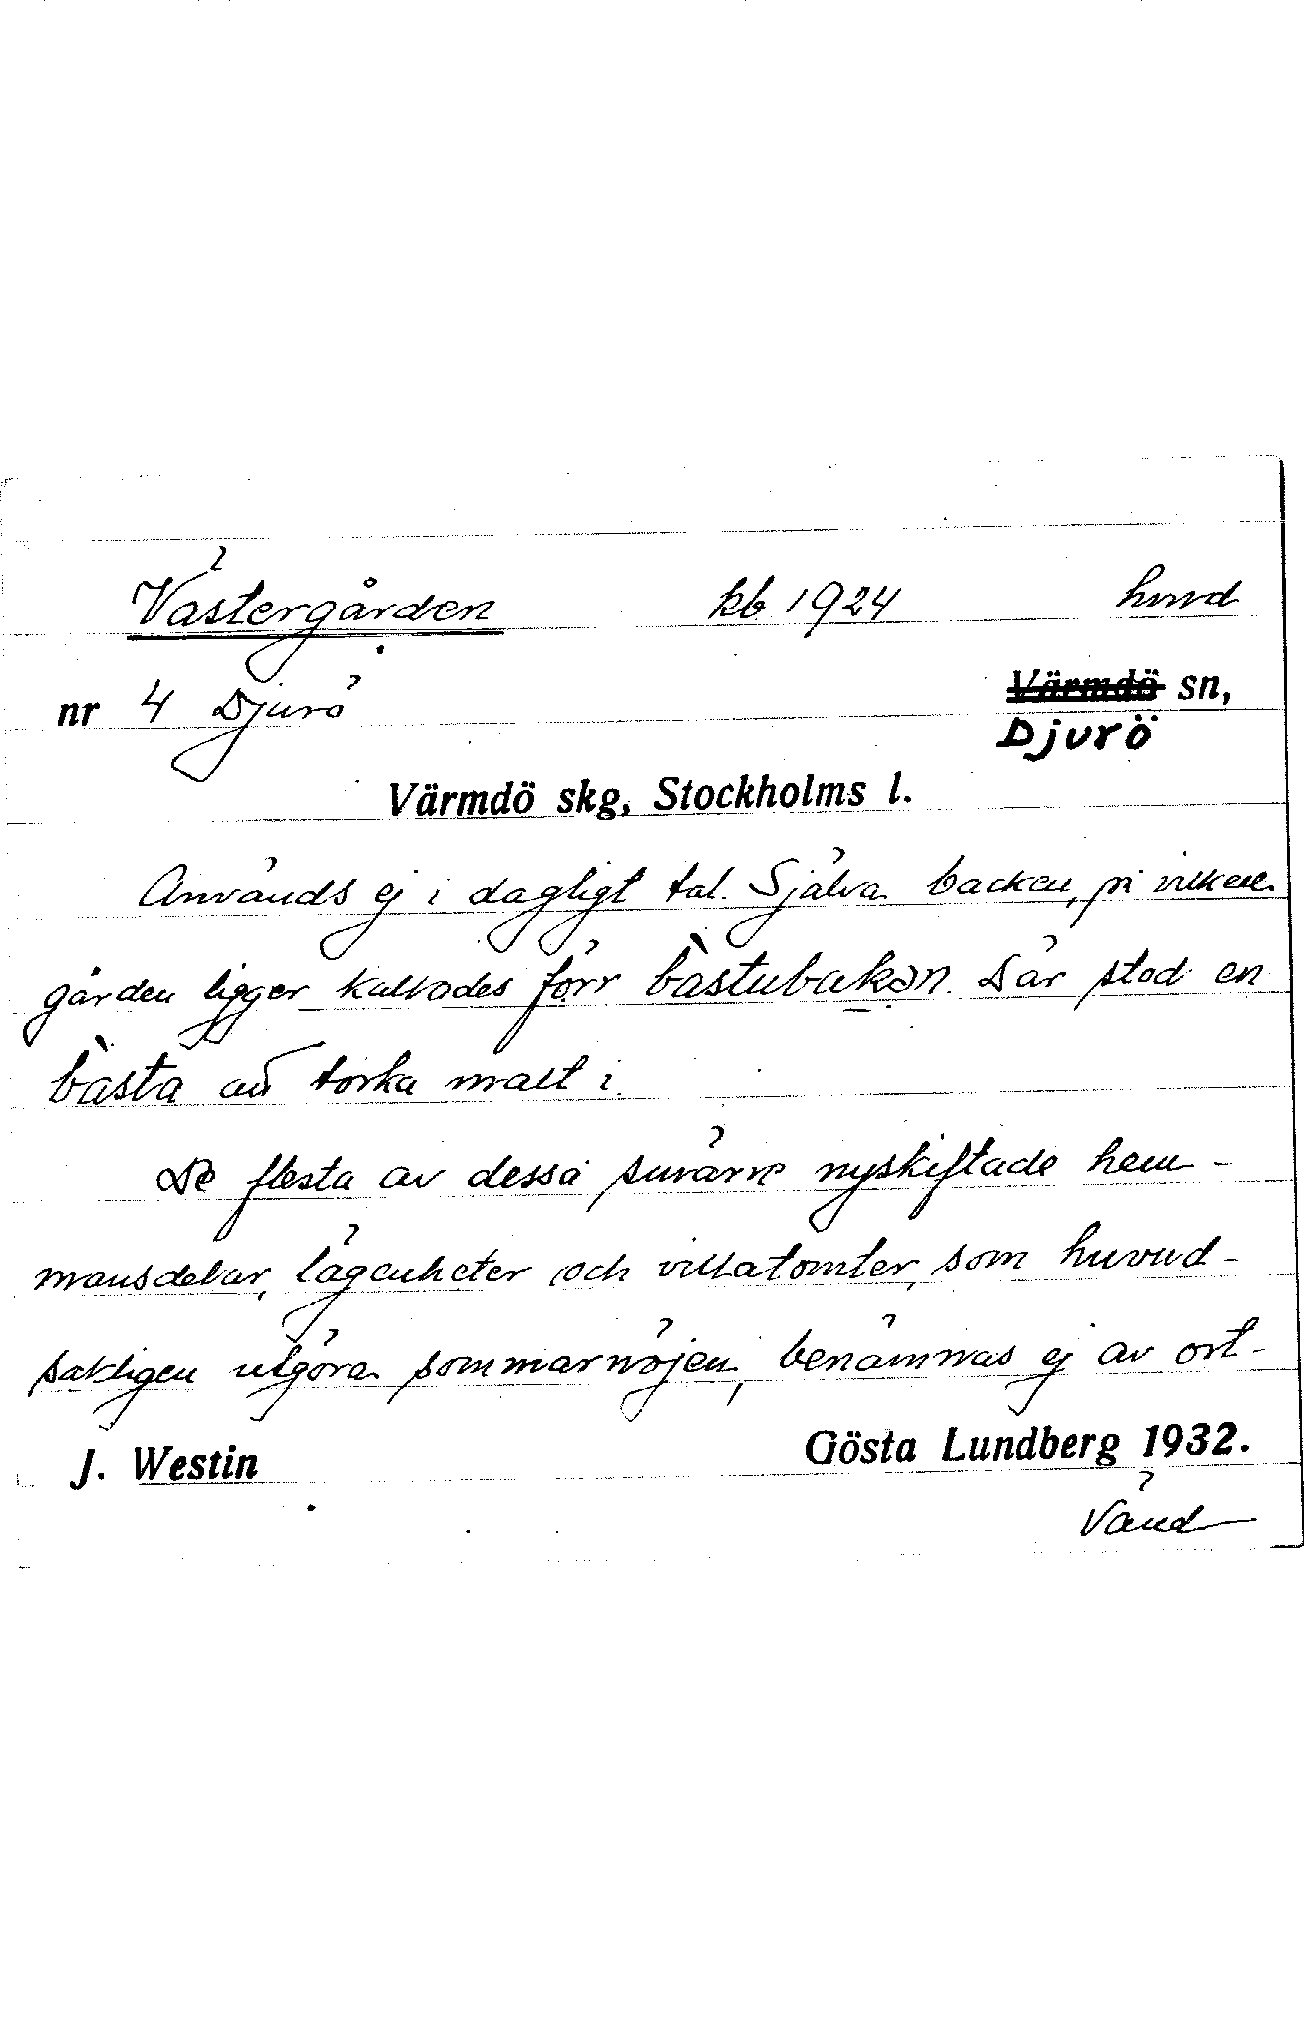 Västergården kb 1924 hmd
nr 4 Djurö Värmdö sn,
Djurö
Värmdö skg, Stockholms l.
Används ej i dagligt tal. Själva backen, på vilken
gården ligger kallades förr bàstubakən. Där stod en
bàsta att torka malt i.
De flesta av dessa smärre nyskiftade hem-
mansdelar, lägenheter och villatomter, som huvud-
sakligen utgöra sommarnöjen, benämnas ej av ort-
J. Westin Gösta Lundberg 1932.
Vänd